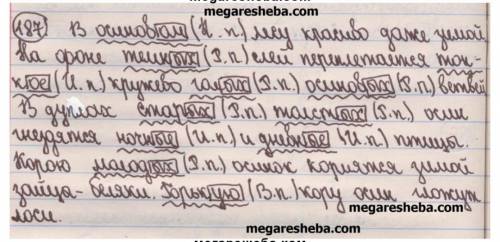 megaresheba.com
187) В осинов[ом] (И.п.) лесу красиво даже зимой.
На фоне темн[ых] (Р.п.) елей переплетается тон-
к[ое] (И.п.) кружево голых (Р.п.) осинов[ых] (Р.п.) ветвей
В дуплах стар[ых] (Р.п.) толст[ых] (Р.п.) осин
гнездятся ночн[ые] (И.п.) и дневн[ые] (И.п.) птицы.
Корою молод[ых] (Р.п.) осинок кормятся зимой
зайцы-беляки. Горьк[ую] (В.п.) кору осин гложут
megaresheba.com
лоси.
megaresheba.com